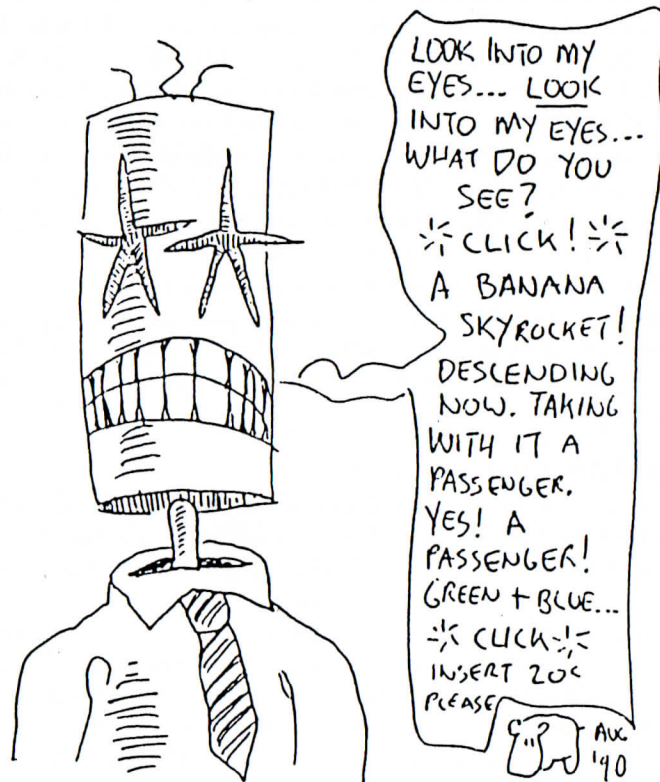 LOOK INTO MY
EYES... LOOK
INTO MY EYES...
WHAT DO YOU
SEE?
CLICK!
A BANANA
SKYROCKET!
DESCENDING
NOW. TAKING
WITH IT A
PASSENGER.
YES! A
PASSENGER!
GREEN + BLUE...
CLICK
INSERT 20¢
PLEASE
AUG
'90